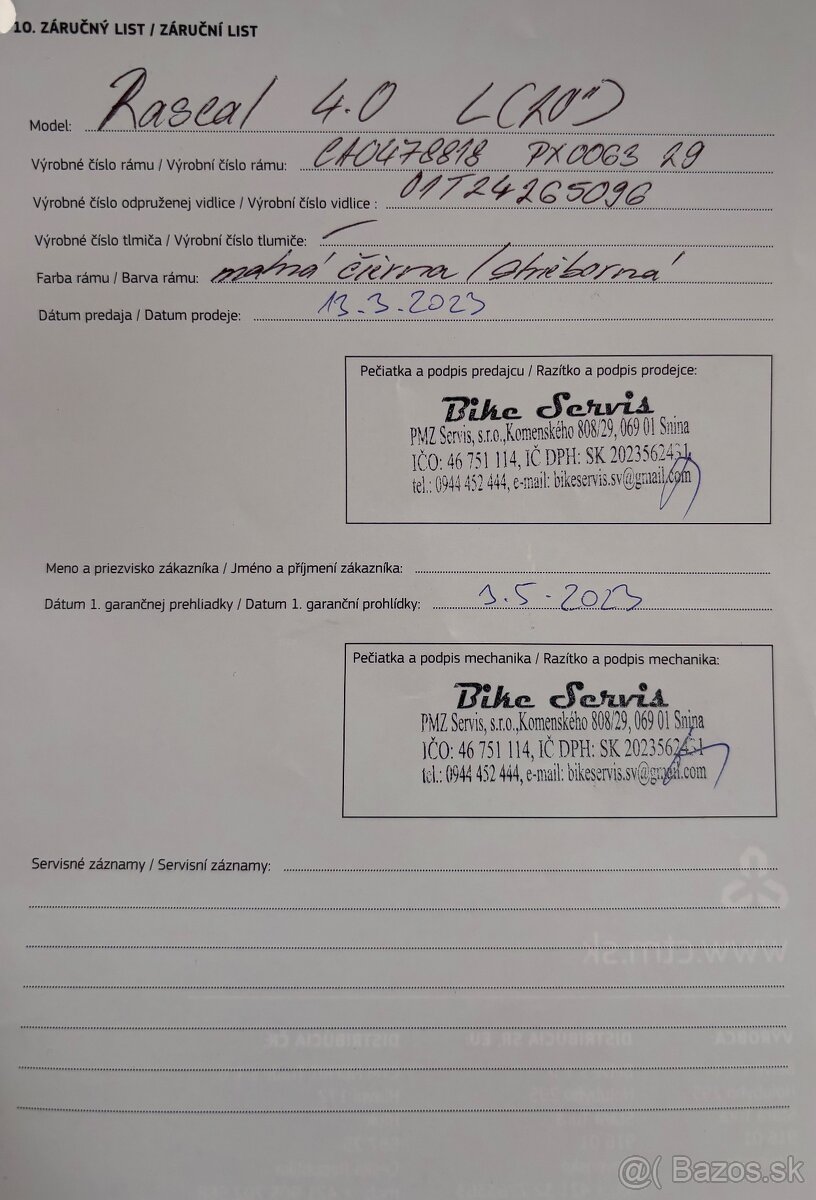 10. ZÁRUČNÝ LIST / ZÁRUČNÍ LIST
Model: Rascal 4.0 L (20")
Výrobné číslo rámu / Výrobní číslo rámu: CA0478818 PX0063 29
Výrobné číslo odpruženej vidlice / Výrobní číslo vidlice : 01T24265096
Výrobné číslo tlmiča / Výrobní číslo tlumiče: —
Farba rámu / Barva rámu: matná čierna / strieborná
Dátum predaja / Datum prodeje: 13.3.2023
Pečiatka a podpis predajcu / Razítko a podpis prodejce:
Bike Servis
PMZ Servis, s.r.o.,Komenského 808/29, 069 01 Snina
IČO: 46 751 114, IČ DPH: SK 2023562431
tel.: 0944 452 444, e-mail: bikeservis.sv@gmail.com
Meno a priezvisko zákazníka / Jméno a příjmení zákazníka:
Dátum 1. garančnej prehliadky / Datum 1. garanční prohlídky: 3.5.2023
Pečiatka a podpis mechanika / Razítko a podpis mechanika:
Bike Servis
PMZ Servis, s.r.o.,Komenského 808/29, 069 01 Snina
IČO: 46 751 114, IČ DPH: SK 2023562431
tel.: 0944 452 444, e-mail: bikeservis.sv@gmail.com
Servisné záznamy / Servisní záznamy:
www.ctm.sk
VÝROBCA DISTRIBÚCIA SR, EU: DISTRIBÚCIA ČR:
@( Bazos.sk